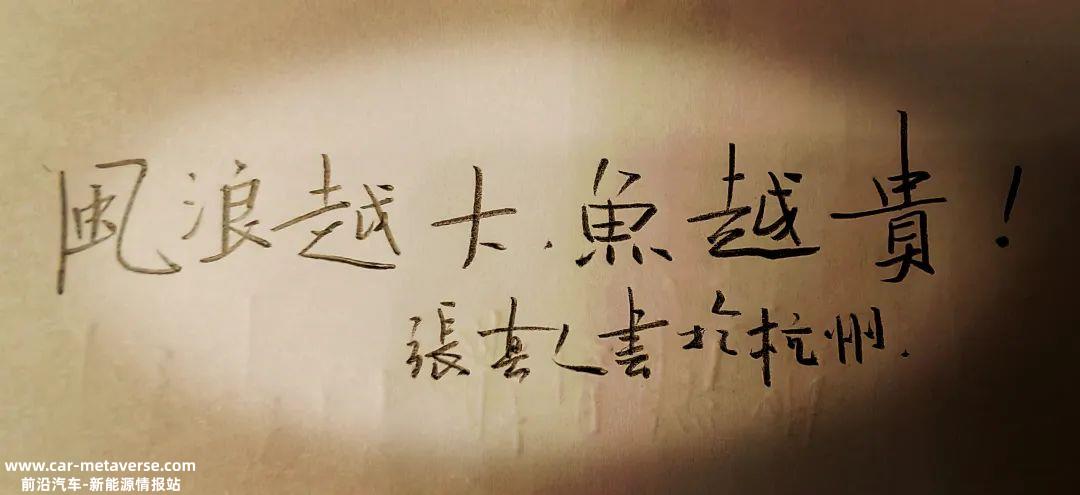 風浪越大.魚越貴!
張真人書於杭州.
www.car-metaverse.com
前沿汽车-新能源情报站